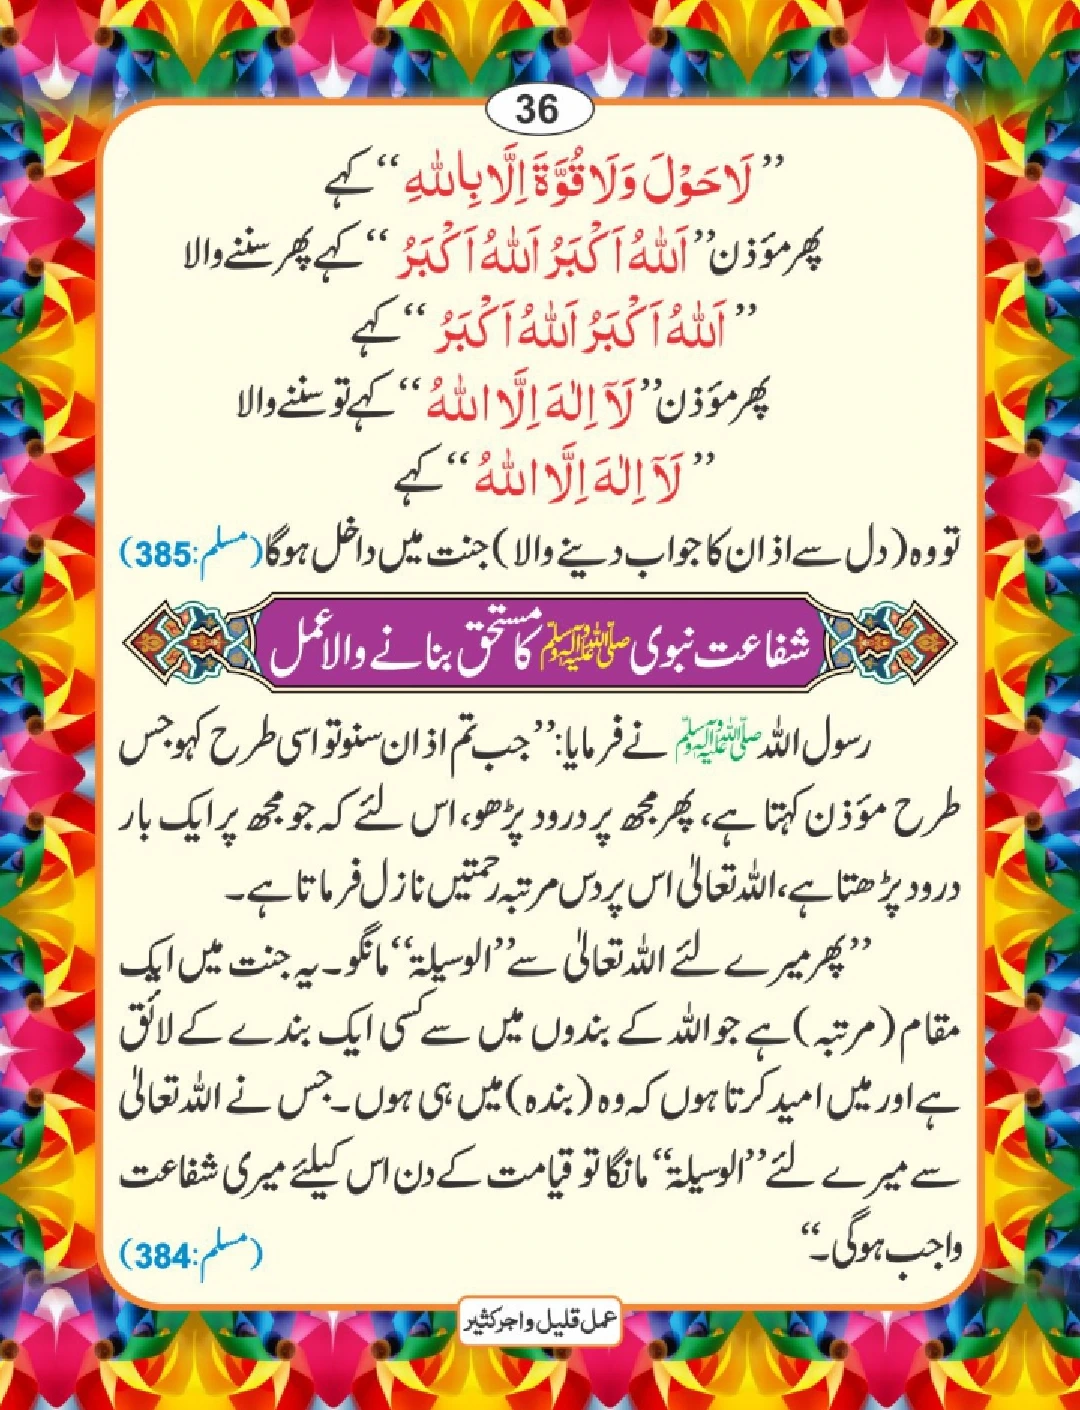 36
”لَا حَوْلَ وَلَا قُوَّةَ اِلَّا بِاللهِ“ کہے
پھر مؤذن ”اَللهُ اَكْبَرُ اَللهُ اَكْبَرُ“ کہے پھر سننے والا
”اَللهُ اَكْبَرُ اَللهُ اَكْبَرُ“ کہے
پھر مؤذن ”لَآ اِلٰهَ اِلَّا اللهُ“ کہے تو سننے والا
”لَآ اِلٰهَ اِلَّا اللهُ“ کہے
تو وہ (دل سے اذان کا جواب دینے والا) جنت میں داخل ہوگا (مسلم:385)
شفاعت نبوی ﷺ کا مستحق بنانے والا عمل
رسول اللہ ﷺ نے فرمایا: ”جب تم اذان سنو تو اسی طرح کہو جس
طرح مؤذن کہتا ہے، پھر مجھ پر درود پڑھو، اس لئے کہ جو مجھ پر ایک بار
درود پڑھتا ہے، اللہ تعالیٰ اس پر دس مرتبہ رحمتیں نازل فرماتا ہے۔
”پھر میرے لئے اللہ تعالیٰ سے ”الوسیلۃ“ مانگو۔ یہ جنت میں ایک
مقام (مرتبہ) ہے جو اللہ کے بندوں میں سے کسی ایک بندے کے لائق
ہے اور میں امید کرتا ہوں کہ وہ (بندہ) میں ہی ہوں۔ جس نے اللہ تعالیٰ
سے میرے لئے ”الوسیلۃ“ مانگا تو قیامت کے دن اس کیلئے میری شفاعت
واجب ہوگی۔“ (مسلم:384)
عمل قلیل و اجر کثیر